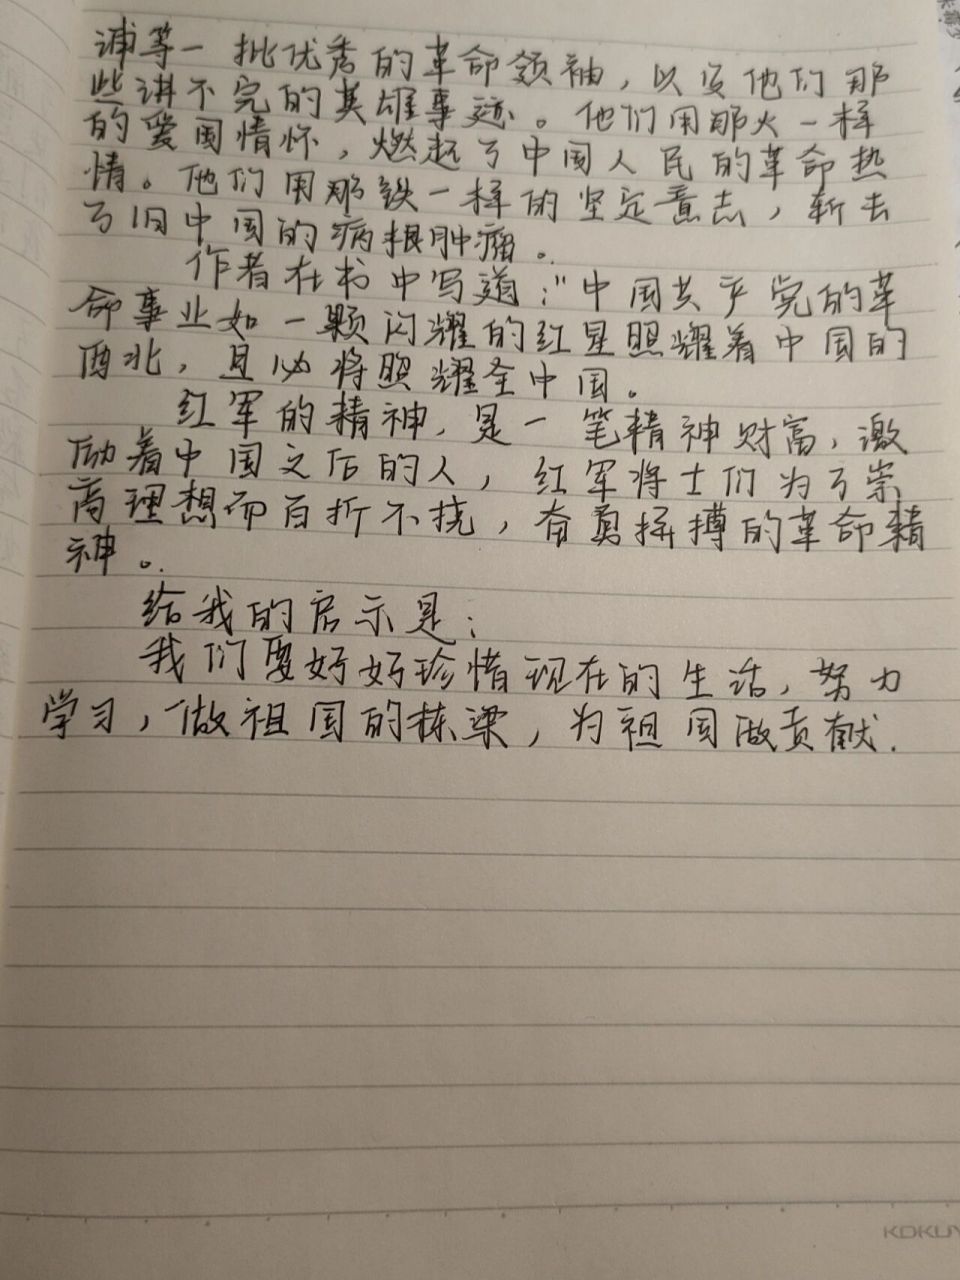 浦等一批优秀的革命领袖，以及他们那
些讲不完的英雄事迹。他们用那火一样
的爱国情怀，燃起了中国人民的革命热
情。他们用那铁一样的坚定意志，斩去
了旧中国的病根肿瘤。
作者在书中写道："中国共产党的革
命事业如一颗闪耀的红星照耀着中国的
西北，且必将照耀全中国。
红军的精神，是一笔精神财富，激
励着中国之后的人，红军将士们为了崇
高理想而百折不挠，奋勇拼搏的革命精
神。
给我的启示是：
我们要好好珍惜现在的生活，努力
学习，做祖国的栋梁，为祖国做贡献.
KOKUY